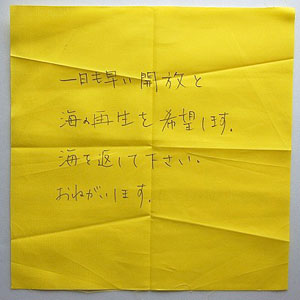 一日も早い開放と
海の再生を希望します。
海を返して下さい。
おねがいします。